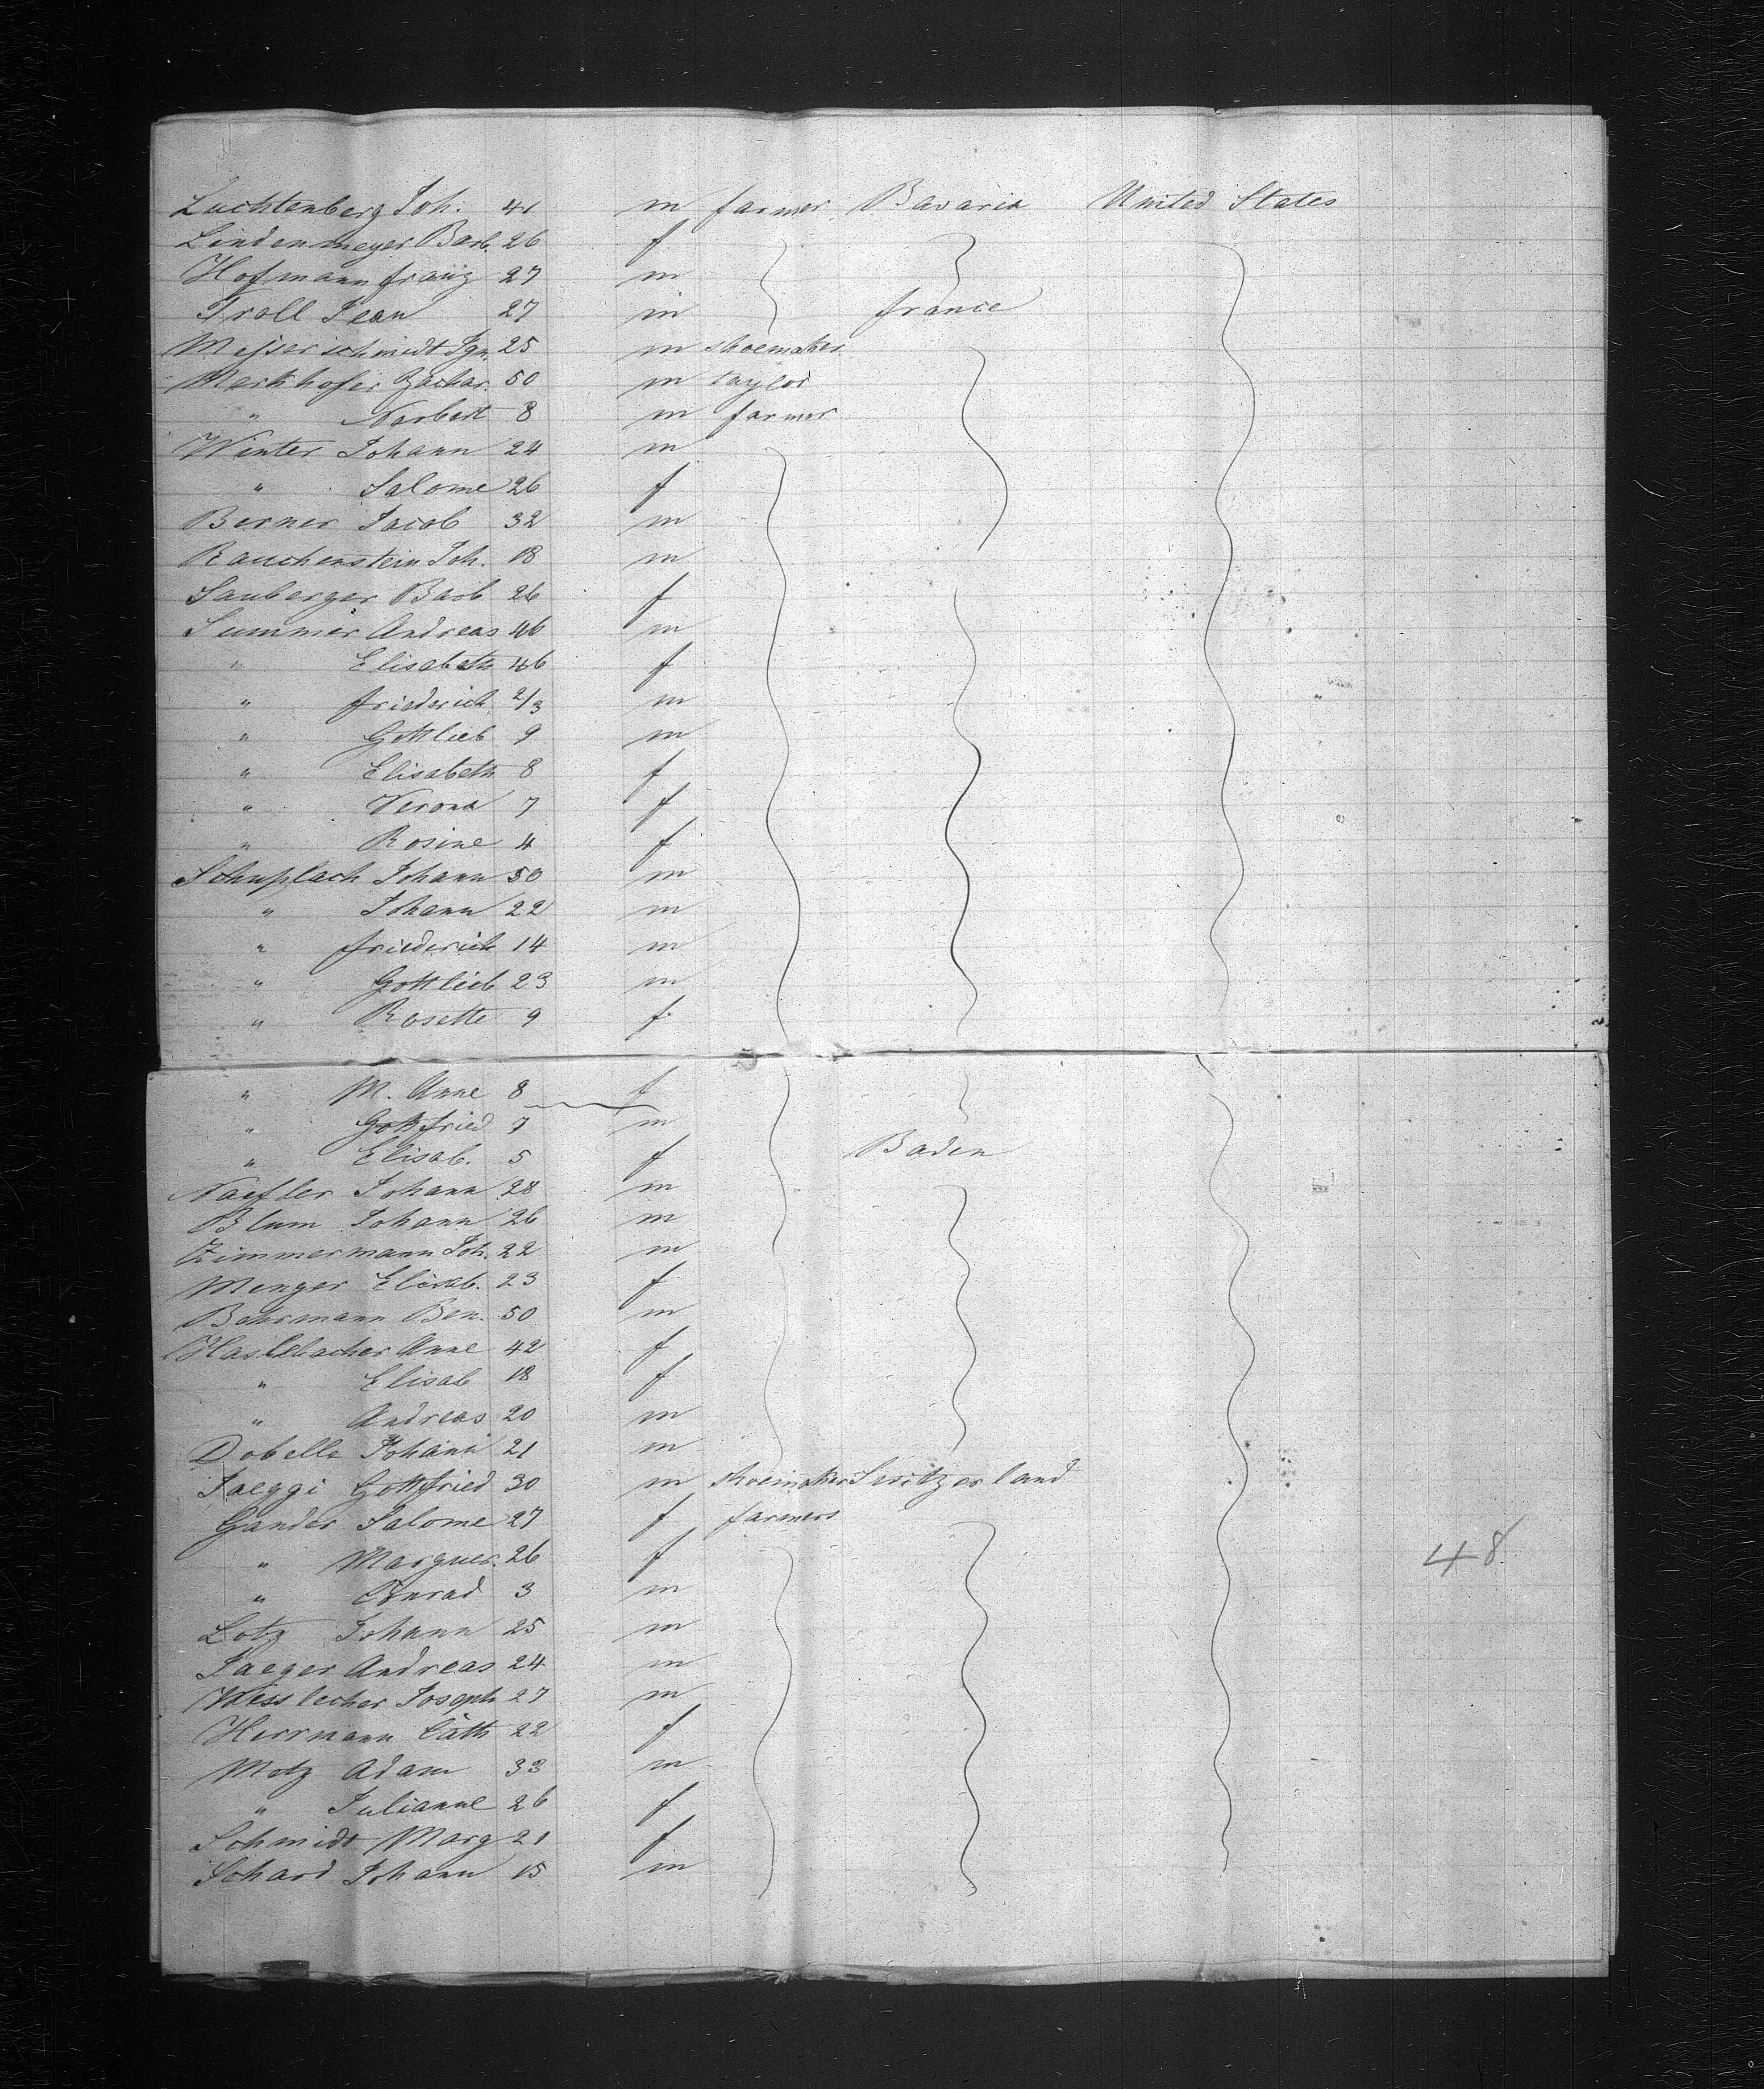 Luchtenberg Joh. 41 m farmer Bavaria United States
Lindenmeyer Barb. 26 f
Hofmann franz 27 m
Troll Jean 27 m france
Messerschmidt Ign. 25 m shoemaker
Merkhofer Zachar. 50 m taylor
" Norbert 8 m farmer
Winter Johann 24 m
" Salome 26 f
Berner Jacob 32 m
Rauchenstein Joh. 18 m
Sauberger Barb 26 f
Summer Andreas 46 m
" Elisabeth 46 f
" friederich 2/3 m
" Gottlieb 9 m
" Elisabeth 8 f
" Verona 7 f
" Rosine 4 f
Johann 50 m
" Johann 22 m
" friederich 14 m
" Gottlieb 23 m
" Rosette 9 f
" M. Anne 8 f
" Gottfried 7 m
" Elisab. 5 f Baden
Johann 28 m
Blum Johann 26 m
Zimmermann Joh. 22 m
Menger Elisab. 23 f
Behrmann Ben. 50 m
Haslebacher Anne 42 f
" Elisab 18 f
" Andreas 20 m
Dobelle Johann 21 m
Jaeggi Gottfried 30 m shoemaker Switzerland
Gander Salome 27 f farmers
" Marguer. 26 f
" Conrad 3 m
Lotz Johann 25 m
Jaeger Andreas 24 m
Joseph 27 m
Herrmann Cath 22 f
Motz Adam 33 m
" Julianne 26 f
Schmidt Marg 21 f
Schard Johann 15 m
48